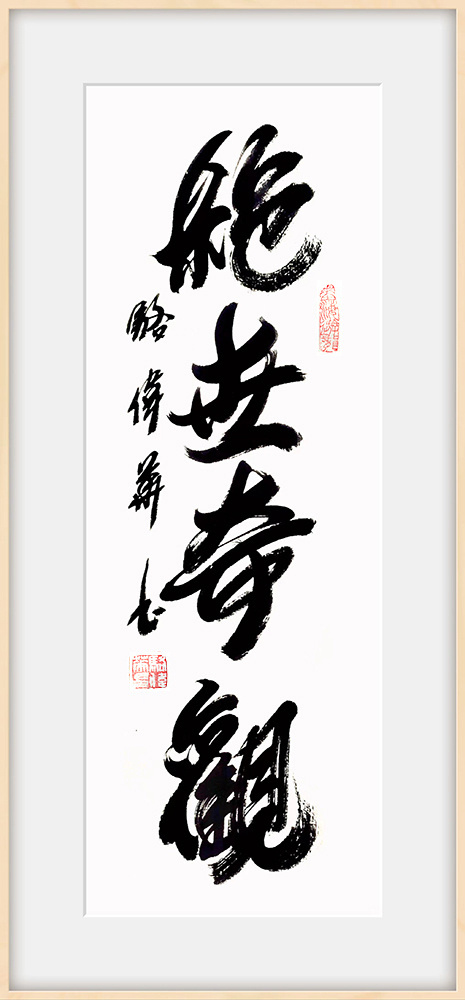 絕世奇觀
駱偉華書